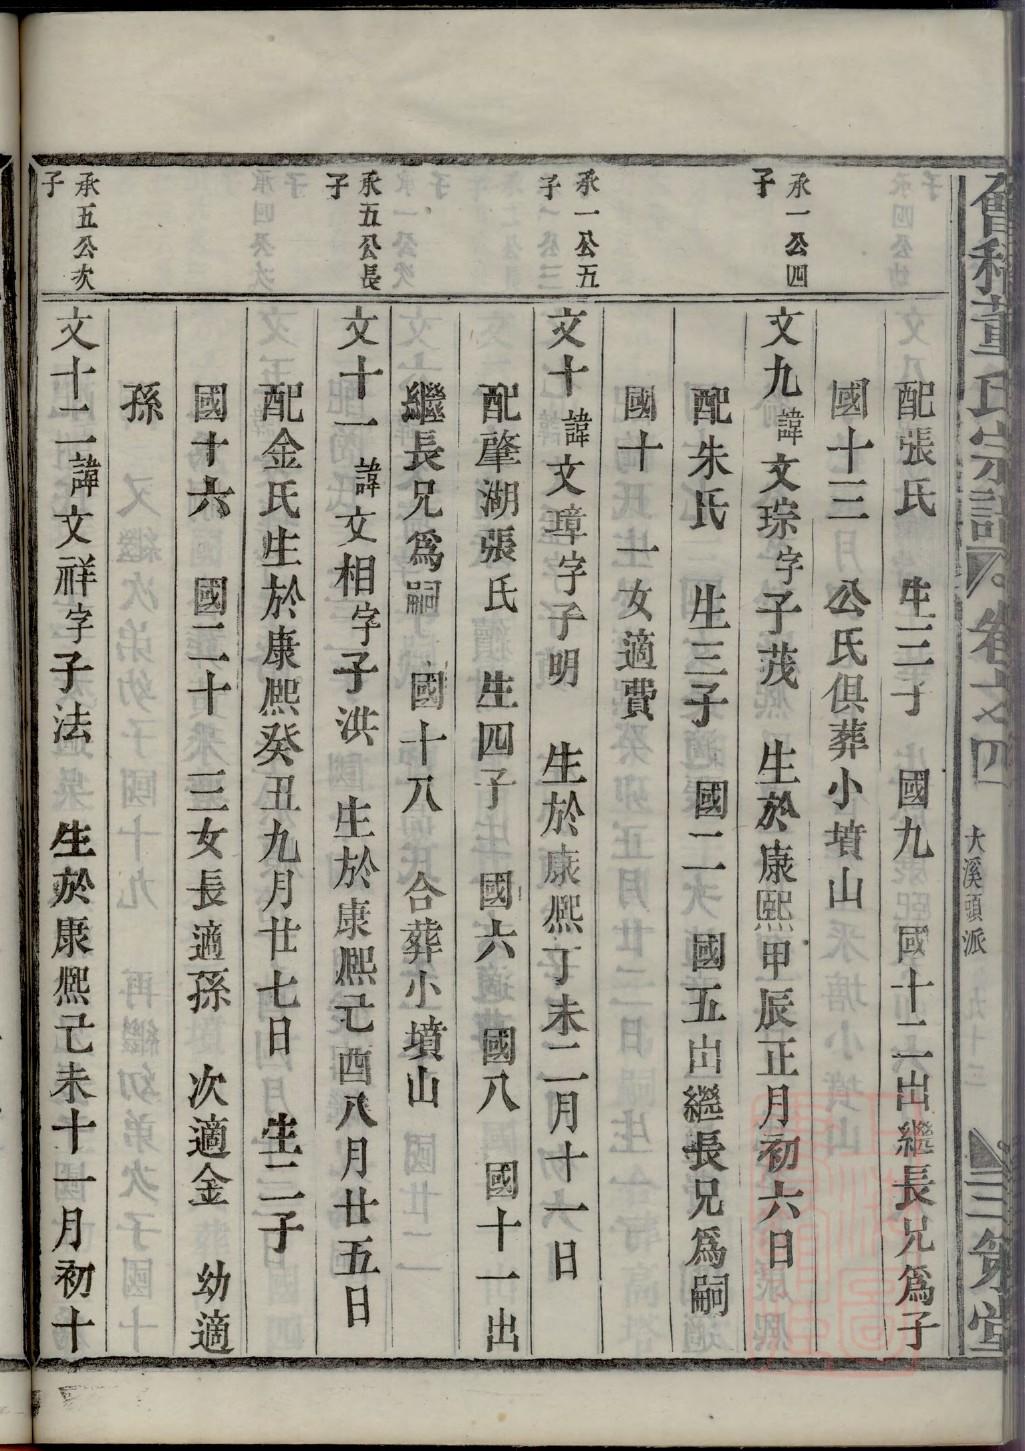 會稽董氏宗譜 卷之四 大溪頭派 三策堂
配張氏 生三子 國九 國十二出繼長兄爲子
國十三 公氏俱葬小墳山
承一公四
子
文九諱文琮字子茂 生於康熙甲辰正月初六日
配朱氏 生三子 國二 國五出繼長兄爲嗣
國十 一女適費
承一公五
子
文十諱文璋字子明 生於康熙丁未二月十一日
配肇湖張氏 生四子 國六 國八 國十一出
繼長兄爲嗣 國十八 合葬小墳山
承五公長
子
文十一諱文相字子洪 生於康熙己酉八月廿五日
配金氏生於康熙癸丑九月廿七日 生二子
國十六 國二十 三女長適孫 次適金 幼適
孫
承五公次
子
文十二諱文祥字子法 生於康熙己未十一月初十